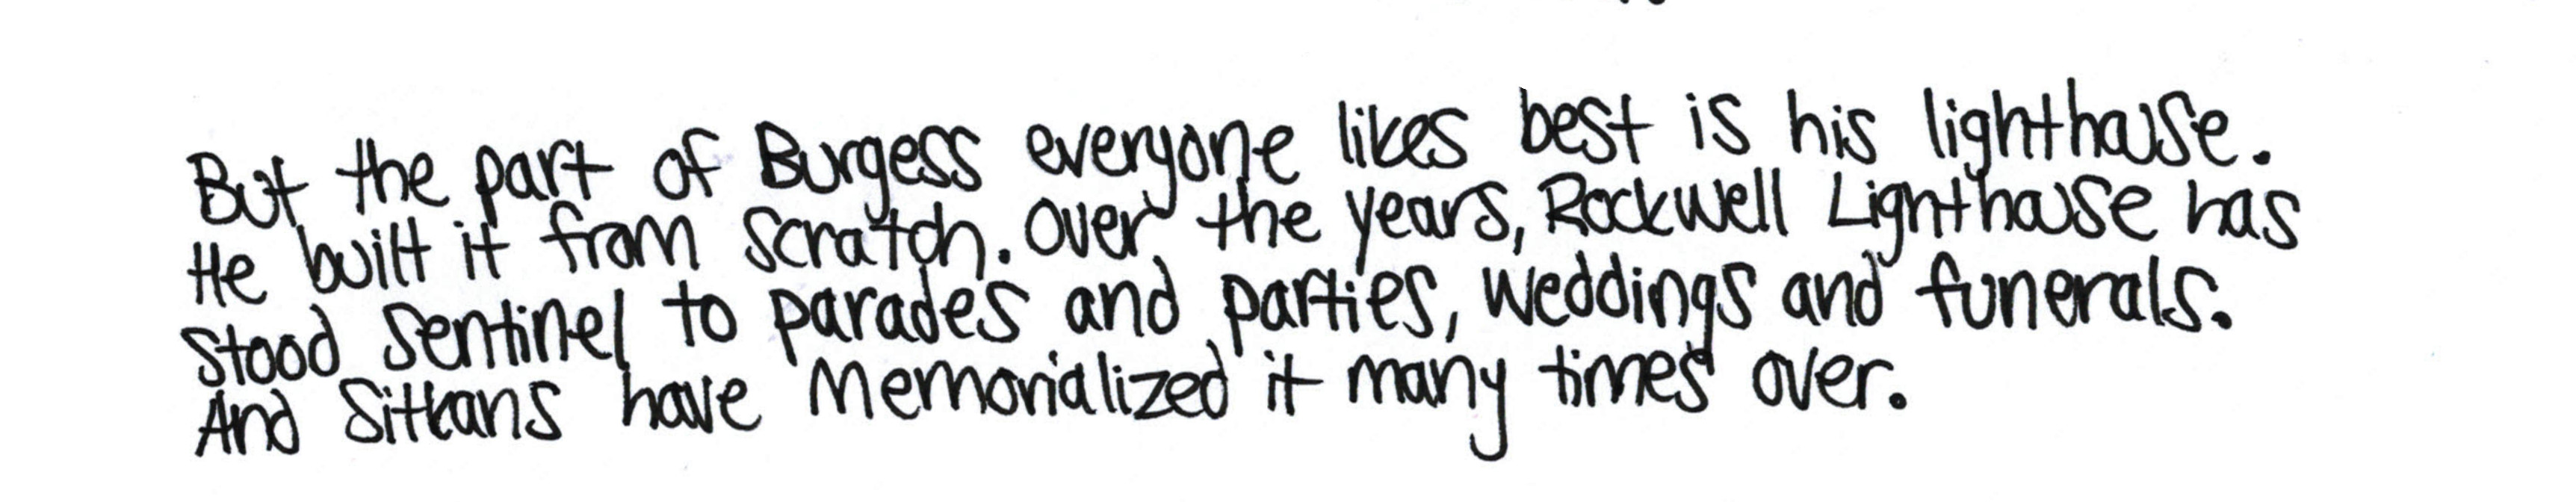 But the part of Burgess everyone likes best is his lighthouse.
He built it from scratch. Over the years, Rockwell Lighthouse has
stood sentinel to parades and parties, weddings and funerals.
And Sitkans have memorialized it many times over.